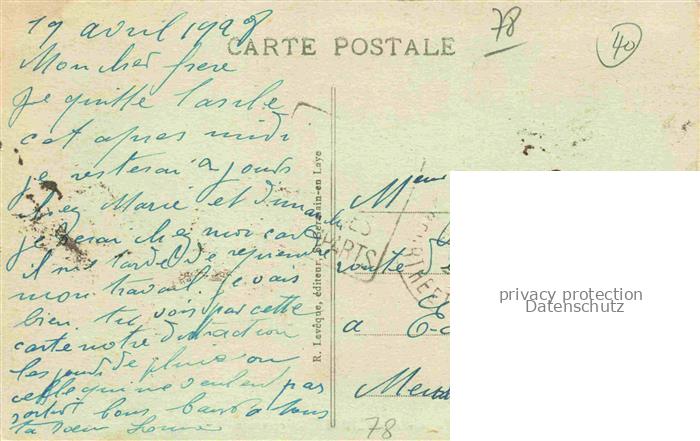 19 avril 1928
78
40
CARTE POSTALE
Mon cher frere
Je quitte l'asile
cet apres midi
je resterai 2 jours
chez Marie et Dimanche
je serai chez moi car
il me tarde de reprendre
mon travail. Je vais
bien. tu vois par cette
carte notre distraction
les jours de pluie ou
celle qui ne veulent pas
sortir bons baisers a tous
ta sœur
R. Levêque, éditeur, St Germain-en Laye
DEPARTS
Meme
route
a
privacy protection
Datenschutz
78